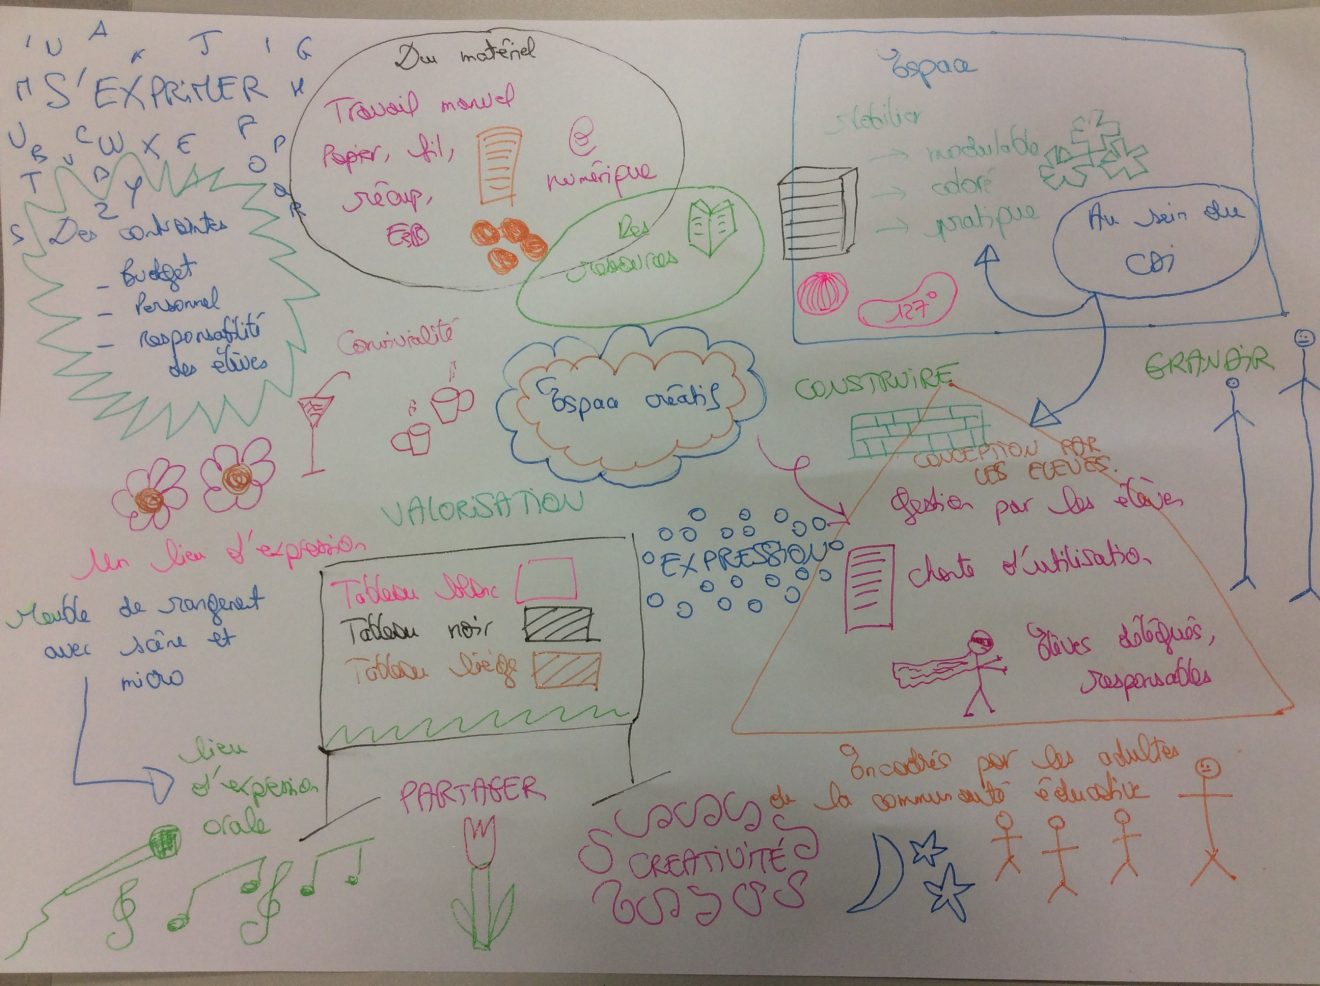 S'EXPRIMER
Des contraintes
- Budget
- Personnel
- responsabilité
des élèves
Du matériel
Travail manuel
Papier, fil,
récup,
@
numérique
Des
ressources
Espace
Mobilier
→ modulable
→ coloré
→ pratique
Au sein du
CDI
127°
Convivialité
Espace créatif
CONSTRUIRE
GRANDIR
CONCEPTION PAR
LES ELEVES.
gestion par les élèves
charte d'utilisation
Elèves délégués,
responsables
Encadrés par les adultes
de la communauté éducative
VALORISATION
Tableau blanc
Tableau noir
Tableau liège
EXPRESSION
Un lieu d'expression
Meuble de rangement
avec scène et
micro
lieu
d'expression
orale
PARTAGER
CREATIVITÉ